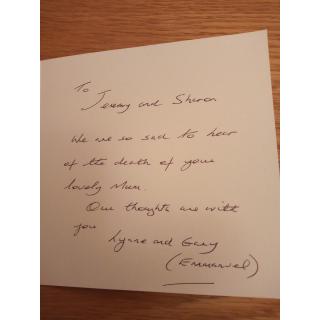 To
Jeremy and Sharon
We are so sad to hear
of the death of your
lovely Mum.
Our thoughts are with
you
Lynne and Gary
(Emmanuel)